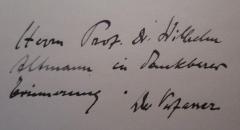 Herrn Prof. Dr. Wilhelm
Altmann in dankbarer
Erinnerung
Der Verfasser